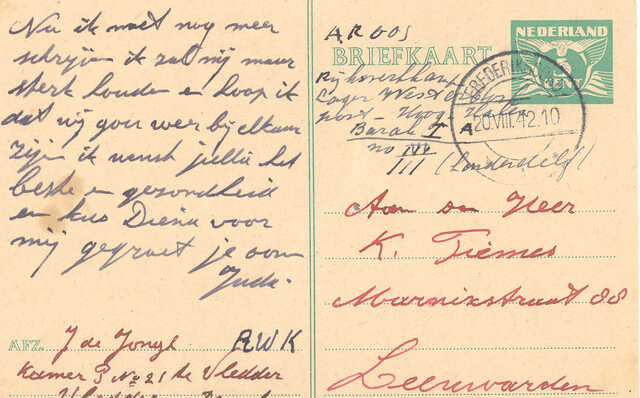 Nu ik moet nog meer
schrijven ik zal mij maar
sterk houden en hoop ik
dat wij gou weer bij elkaar
zijn ik wensh jullie het
beste en gezondheid
en kus Diena voor
mij gegroet je oom
Juda.
AFZ. J de Jongh RWK
Kamer 3 No 21 de Vledder
A R OOS
NEDERLAND
BRIEFKAART
CENT
Rijkswerkkamp
Lager Westerbork
post - Hoog-
Barak I A
no III
20.VIII.42.10
Aan den Heer
K. Tiemes
Marnixstraat 88
Leeuwarden